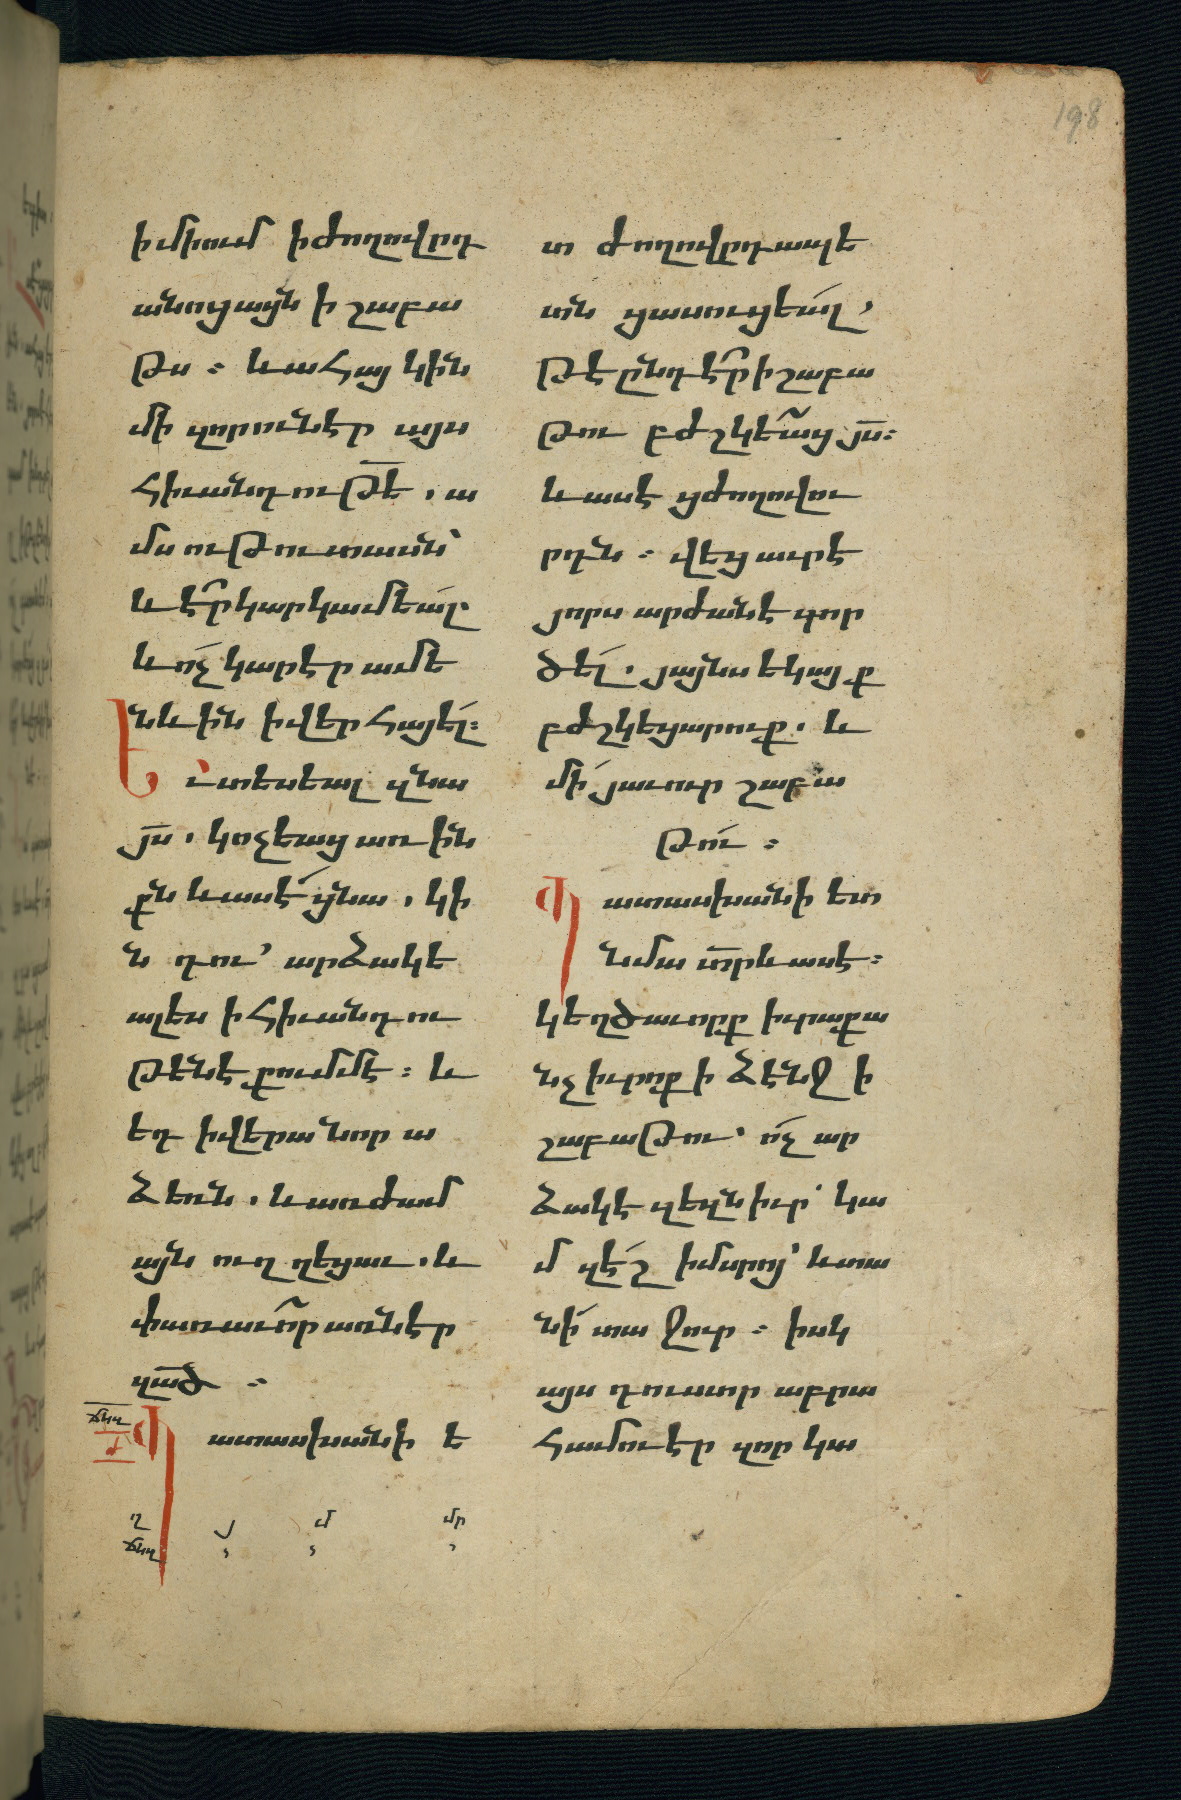 198
ի միում ի ժողովըրդ
անոցացն ի շաբա
թս ։ և ահայ կին
մի զորունէր այս
հիւանդութե̅ , ա
մս ութուտասն՝
և է̅ր կարկամեալ.
և ո՛չ կարէր ամե
նևին ի վեր հայել։
Եւ տեսեալ զնա
յս̅ . կոչեաց առ ին
քն և ասէ ցնա , կի
ն դու՝ արձակե
ալես ի հիւանդու
թենէ քումմէ ։ և
եդ ի վերա նոր ա
ձեռն . և առժամ
այն ուղղեցաւ . և
փառաւո̅ր առնէր
զա̅ծ ։
Պատասխանի ե
տ ժողովըրդապե
տն ցասուցեալ ,
թէ ընդէ̅ր ի շաբա
թու բժշկեաց յս̅։
և ասէ ցժողովու
րդն ։ վեց աւրէ
յորս արժանէ գոր
ծել . յայնս եկայք
բժշկեցարուք . և
մի՛ յաւուր շաբա
թու ։
Պատասխանի ետ
նմա տ̅ր և ասէ։
կեղծաւորք իւրաքա
նչ իւրոք ի ձէնջ ի
շաբաթու՝ ո՛չ ար
ձակէ զեզն իւր՝ կա
մ զէ՛շ ի մսրոյ՝ և տա
նի՛ տա ջուր ։ իսկ
այս դուստր աբրա
համու էր զոր կա